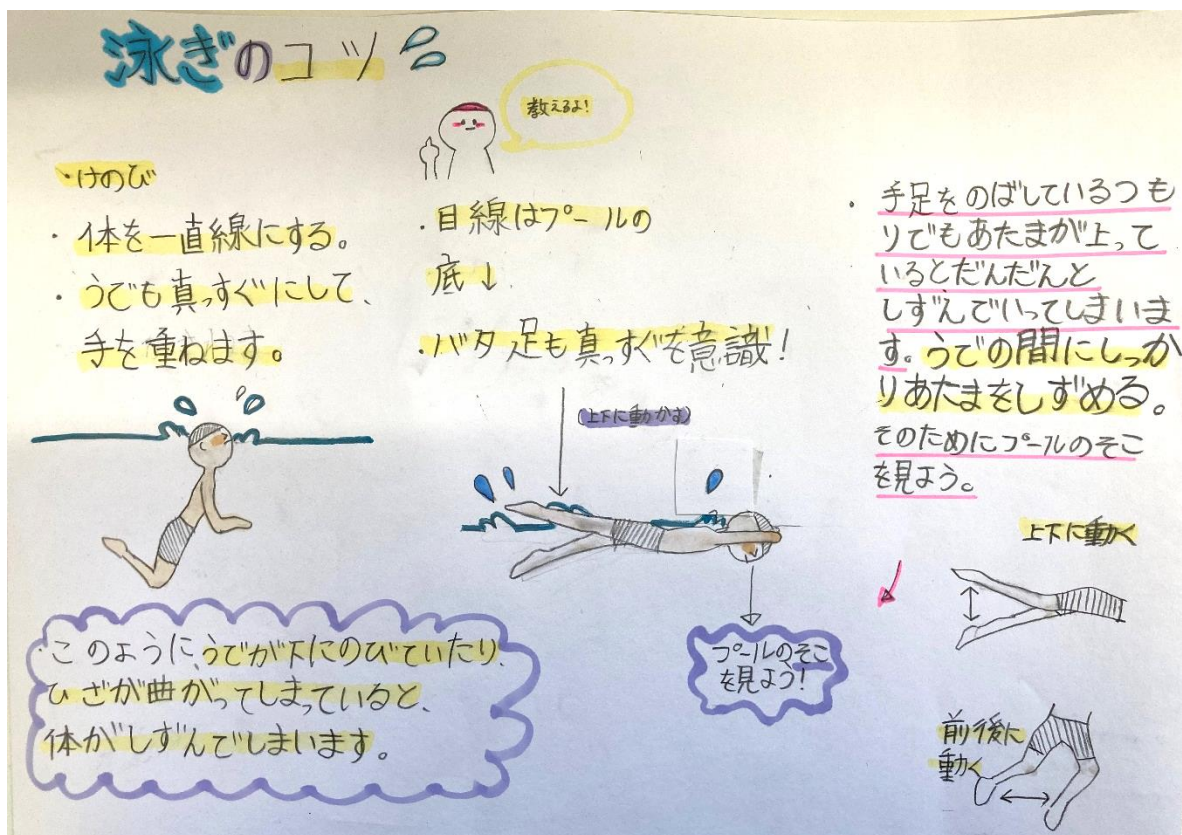 泳ぎのコツ
教えるよ!
・けのび
・体を一直線にする。
・うでも真っすぐにして、
手を重ねます。
・目線はプールの
底↓
・バタ足も真っすぐを意識!
(上下に動かす)
プールのそこ
を見よう!
このように、うでが下にのびていたり、
ひざが曲がってしまっていると、
体がしずんでしまいます。
・手足をのばしているつも
りでもあたまが上って
いるとだんだんと
しずんでいってしまいま
す。うでの間にしっか
りあたまをしずめる。
そのためにプールのそこ
を見よう。
上下に動く
前後に
動く